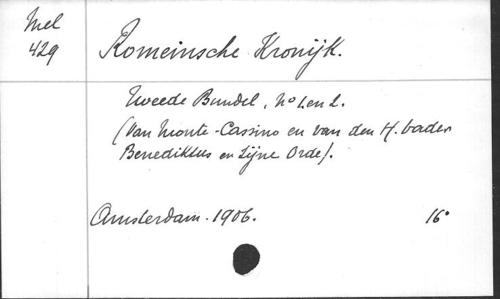 Mel
429
Romeinsche Kronijk.
Tweede Bundel, No 1 en 2.
(Van Monte-Cassino en van den H. vader
Benediktus en Zijne Orde).
Amsterdam. 1906.
16°